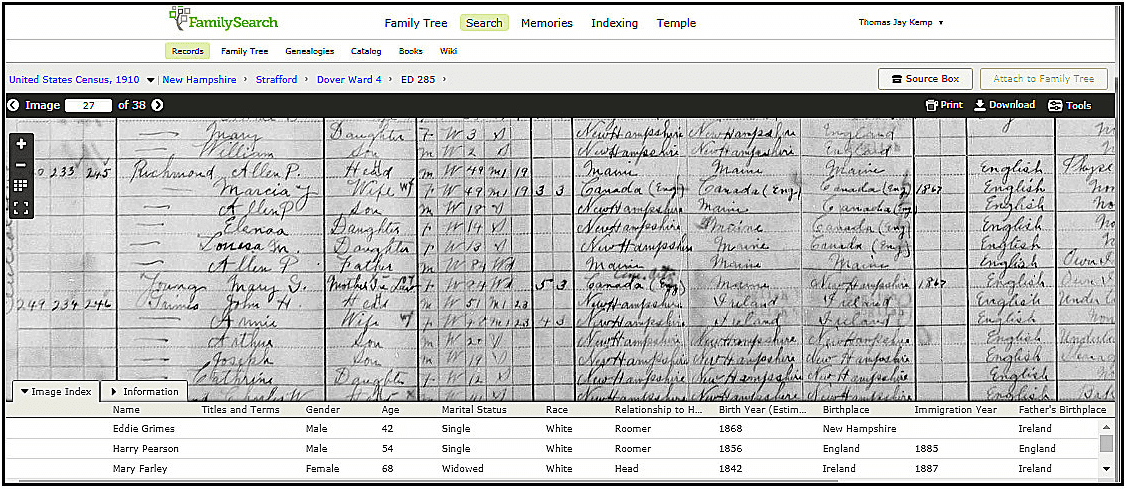 FamilySearch
Family Tree Search Memories Indexing Temple
Thomas Jay Kemp ▼
Records Family Tree Genealogies Catalog Books Wiki
United States Census, 1910 ▼ | New Hampshire › Strafford › Dover Ward 4 › ED 285 ›
Source Box Attach to Family Tree
Image 27 of 38 Print Download Tools
Mary Daughter F W 3 S New Hampshire New Hampshire England
William Son m W 2 S New Hampshire New Hampshire England
233 245 Richmond, Allen P. Head m W 49 M1 19 Maine Maine Maine English
Marcia Y Wife F W 49 M1 19 3 3 Canada (Eng) Canada (Eng) Canada (Eng) 1867 English
Allen P Son m W 18 S New Hampshire Maine Canada (Eng) English
Daughter F W 14 S New Hampshire Maine Canada (Eng) English
Louisa M. Daughter F W 13 S New Hampshire Maine Canada (Eng) English
Allen P Father m W 84 Wd Maine Maine Maine English Own
Young Mary Mother In Law F W Wd 5 3 Canada (Eng) Maine New Hampshire 1867 English Own
234 246 Grimes John H. Head m W 51 M1 23 New Hampshire Ireland Ireland English
Annie Wife F W M1 23 4 3 New Hampshire Ireland Ireland English
Arthur Son m W S New Hampshire New Hampshire New Hampshire English
Joseph Son m W 19 S New Hampshire New Hampshire New Hampshire English
Cathrine Daughter F W 12 S New Hampshire New Hampshire New Hampshire English
▼ Image Index ▶ Information
Name Titles and Terms Gender Age Marital Status Race Relationship to H... Birth Year (Estim... Birthplace Immigration Year Father's Birthplace
Eddie Grimes Male 42 Single White Roomer 1868 New Hampshire Ireland
Harry Pearson Male 54 Single White Roomer 1856 England 1885 England
Mary Farley Female 68 Widowed White Head 1842 Ireland 1887 Ireland